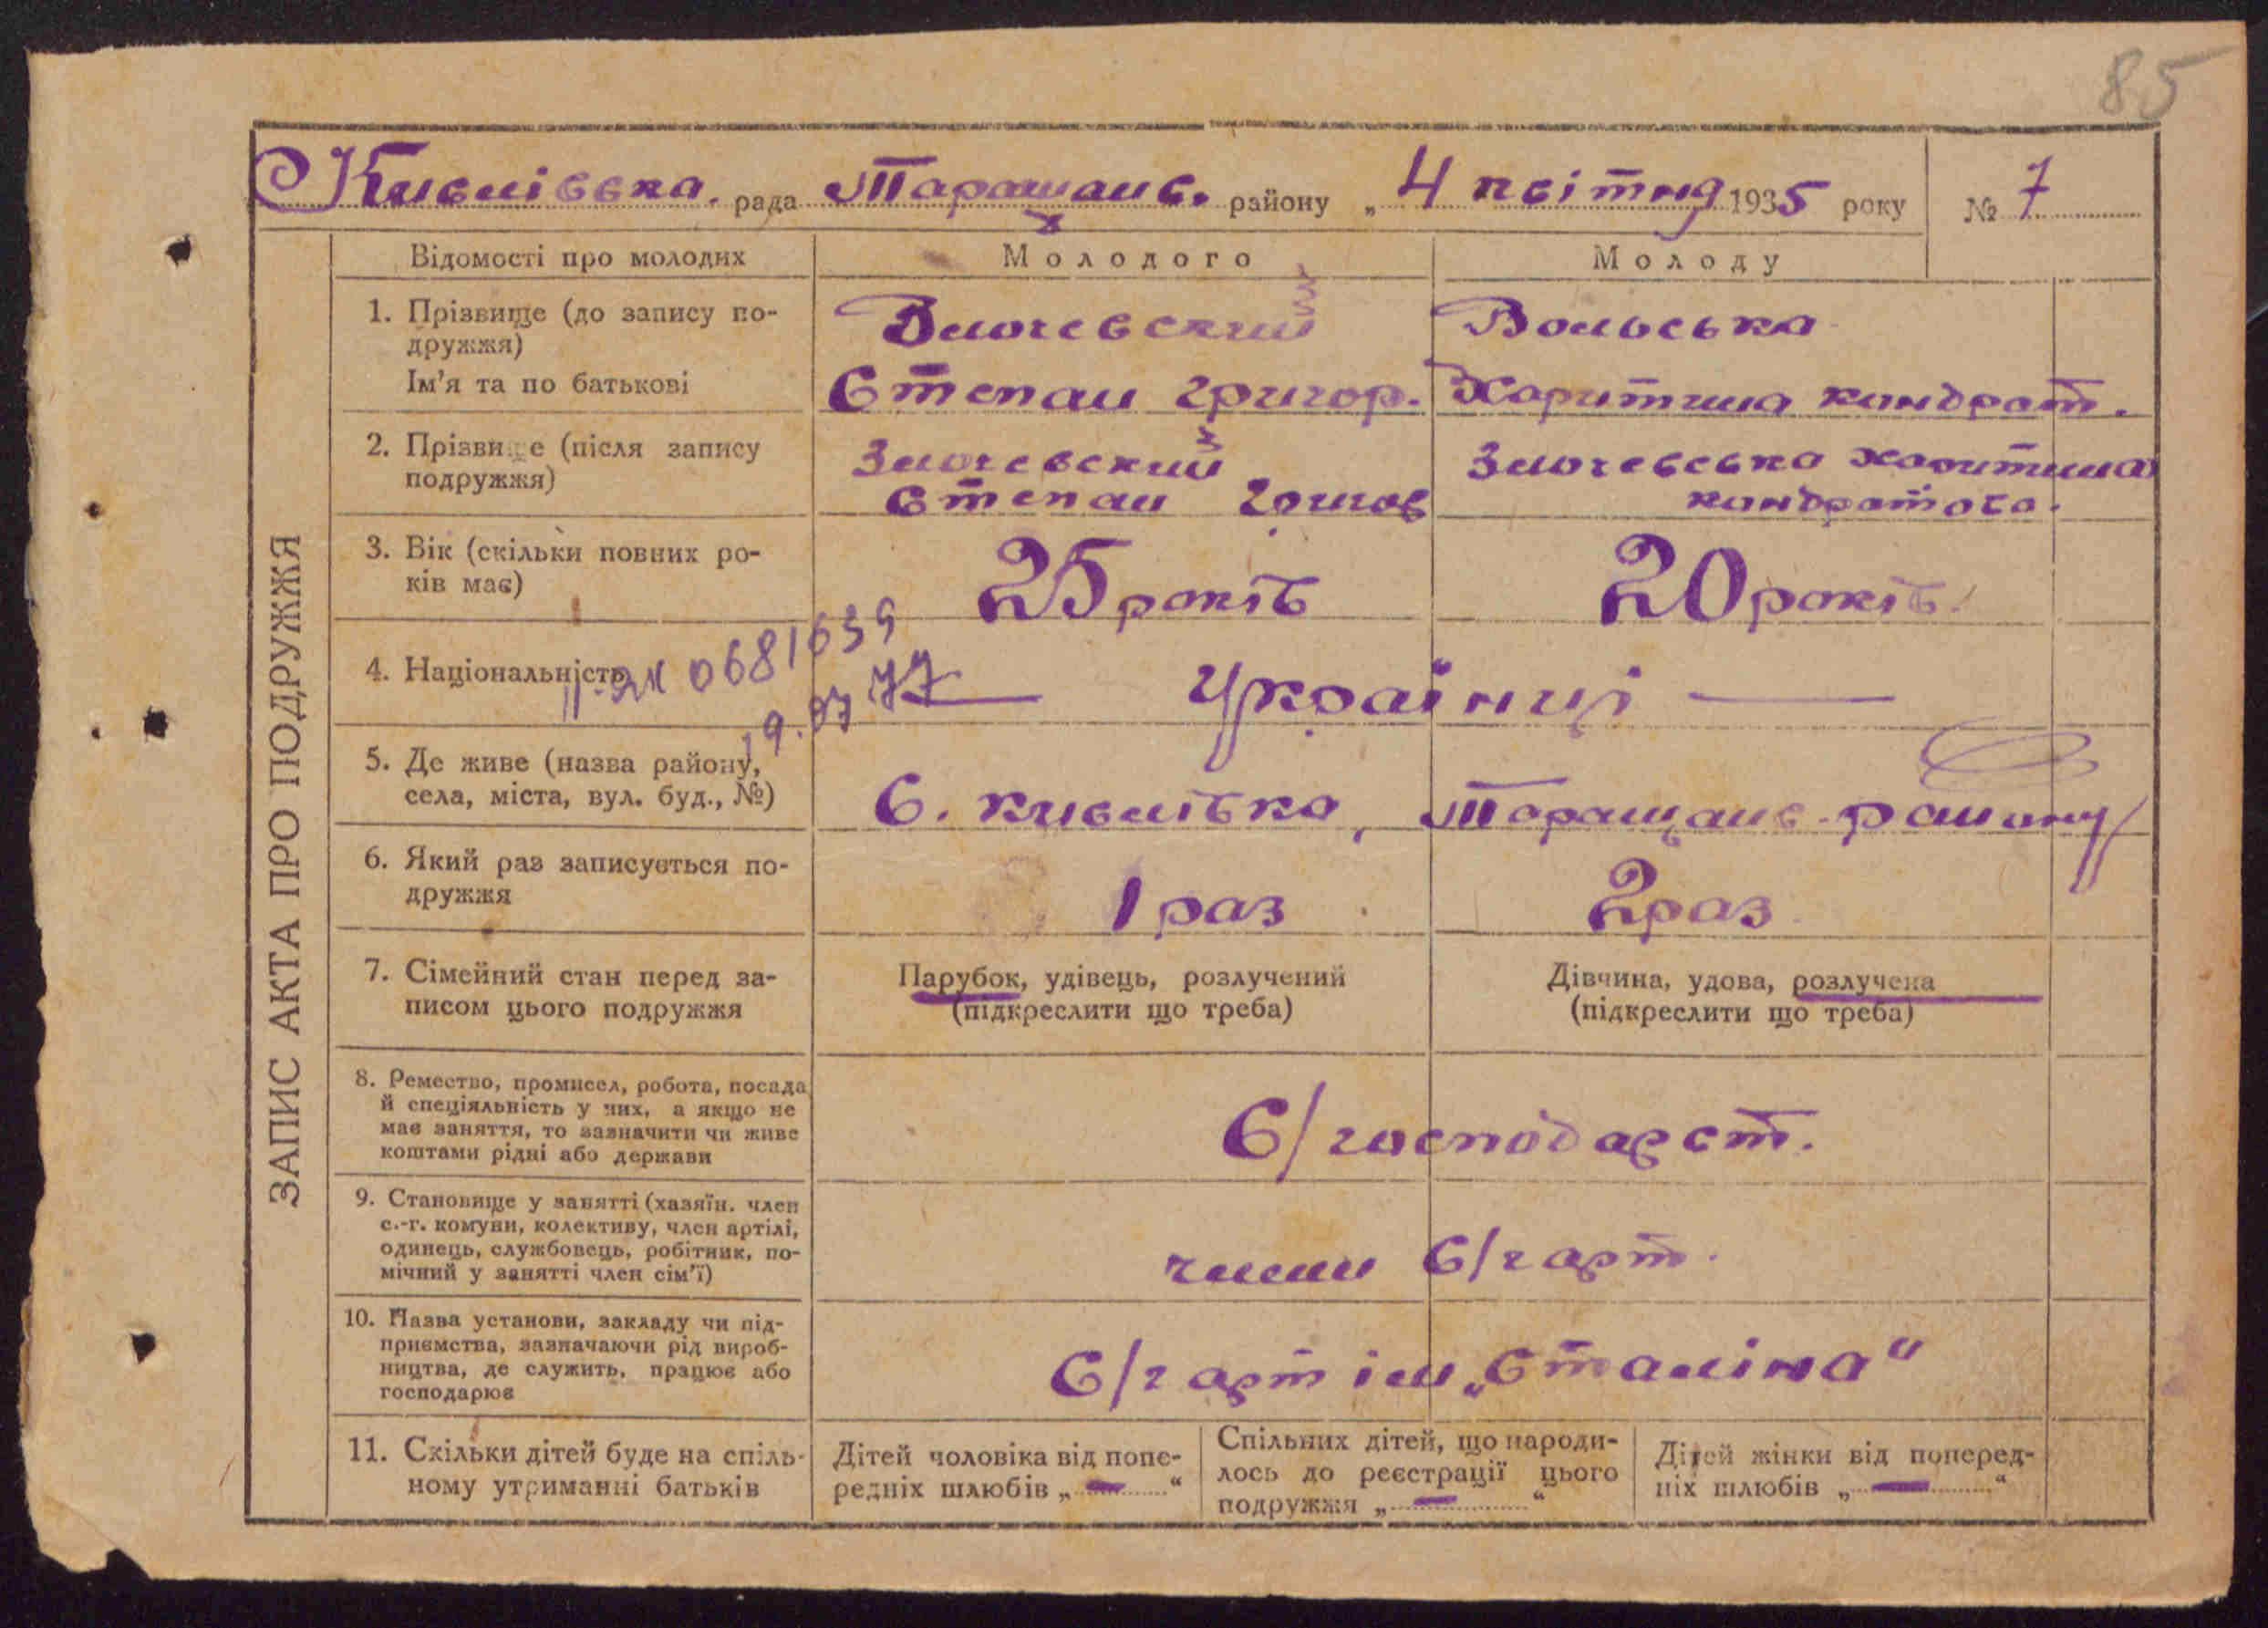 85
Кившівка. рада Таращанс. району „ 4 квітня 1935 року № 7
ЗАПИС АКТА ПРО ПОДРУЖЖЯ
Відомості про молодих
Молодого
Молоду
1. Прізвище (до запису по-
дружжя)
Ім'я та по батькові
Злочевский
Степан Григор.
Вольська
Харитина Кондрат.
2. Прізвище (після запису
подружжя)
Злочевский
Степан Григор
Злочевська Харитина
Кондратова.
3. Вік (скільки повних ро-
ків має)
25 років
20 років.
4. Національність
0681639
19.07 77
Українці
5. Де живе (назва району,
села, міста, вул. буд., №)
С. Кившівка, Таращанс. району
6. Який раз записується по-
дружжя
1 раз
2 раз
7. Сімейний стан перед за-
писом цього подружжя
Парубок, удівець, розлучений
(підкреслити що треба)
Дівчина, удова, розлучена
(підкреслити що треба)
8. Ремество, промисел, робота, посада
й спеціяльність у них, а якщо не
має заняття, то зазначити чи живе
коштами рідні або держави
С/господарст.
9. Становище у занятті (хазяїн. член
с.-г. комуни, колективу, член артілі,
одинець, службовець, робітник, по-
мічний у занятті член сім'ї)
члени С/г арт.
10. Назва установи, закладу чи під-
приємства, зазначаючи рід вироб-
ництва, де служить, працює або
господарює
С/г арт ім „Сталіна“
11. Скільки дітей буде на спіль-
ному утриманні батьків
Дітей чоловіка від попе-
редніх шлюбів „ — “
Спільних дітей, що народи-
лось до реєстрації цього
подружжя „ — “
Дітей жінки від поперед-
ніх шлюбів „ — “